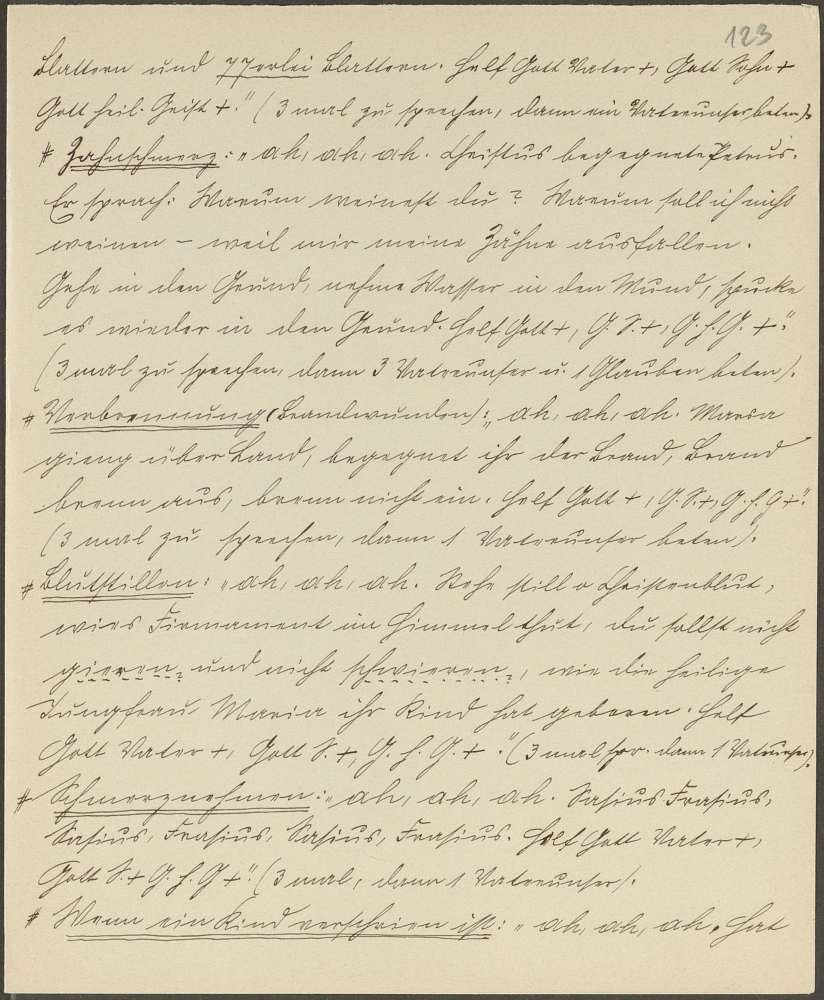 123
Blattern und 77erlei Blattern. Helf Gott Vater +, Gott Sohn +
Gott heil. Geist +." (3 mal zu sprechen, dann ein Vaterunser beten).
# Zahnschmerz: „ah, ah, ah. Christus begegnete Petrus.
Er sprach: Warum weinest du? Warum soll ich nicht
weinen – weil mir meine Zähne ausfallen.
Gehe in den Grund, nehme Wasser in den Mund, spucke
es wieder in den Grund. Helf Gott +, G. S. +, G. h. G. +."
(3 mal zu sprechen, dann 3 Vaterunser u. 1 Glauben beten).
# Verbrennung (Brandwunden): „ah, ah, ah. Maria
gieng über Land, begegnet ihr der Brand, Brand
brenn aus, brenn nicht ein. Helf Gott +, G. S. +, G. h. G +."
(3 mal zu sprechen, dann 1 Vaterunser beten).
# Blutstillen: „ah, ah, ah. Stehe still o Christenblut,
wies Firmament im Himmel thut, du sollst nicht
gieren und nicht schwieren, wie die heilige
Jungfrau Maria ihr Kind hat geboren. Helf
Gott Vater +, Gott S. +, G. h. G. +." (3 mal spr. dann 1 Vaterunser).
# Schmerznehmen: „ah, ah, ah. Sasius Frasius,
Sasius, Frasius, Sasius, Frasius. Helf Gott Vater +,
Gott S. + G. h. G +." (3 mal, dann 1 Vaterunser).
# Wenn ein Kind verschrien ist: „ah, ah, ah. Hat